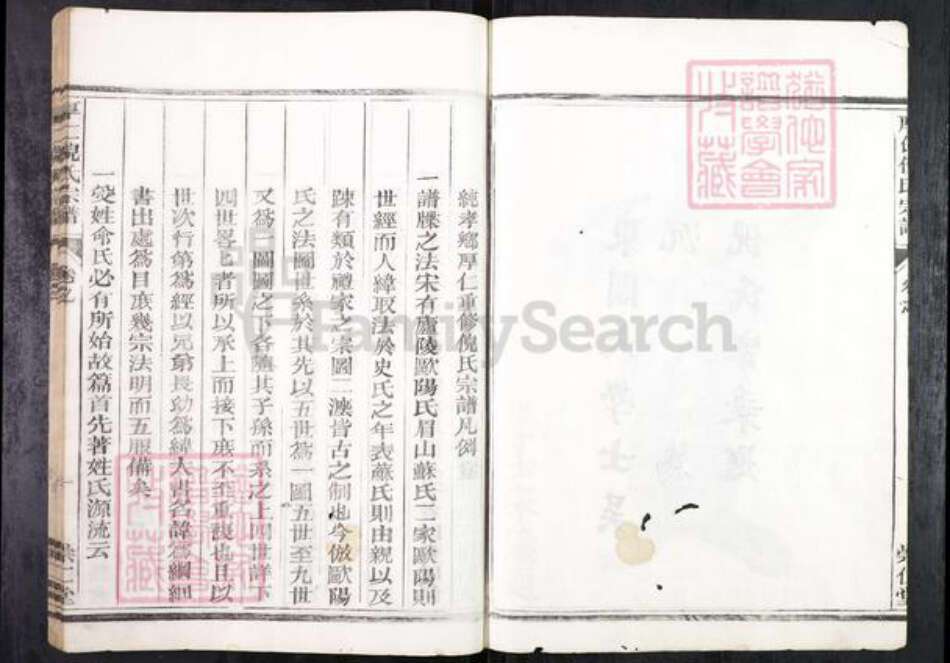 純孝鄉厚仁重修倪氏宗譜凡例
一譜牒之法宋有廬陵歐陽氏眉山蘇氏二家歐陽則
世經而人緯取法於史氏之年表蘇氏則由親以及
疎有類於禮家之宗圖二灋皆古之制也今倣歐陽
氏之法圖世系於其先以五世爲一圖五世至九世
又爲一圖圖之下各隨其子孫而系之上四世詳下
四世畧
者所以承上而接下庻不至重複也且以
世次行第爲經以兄弟長幼爲緯大書名諱爲綱細
書出處爲目庻幾宗法明而五服備矣
一受姓命氏必有所始故篇首先著姓氏源流云
倪氏宗譜
FamilySearch
譜學會
收藏
收藏